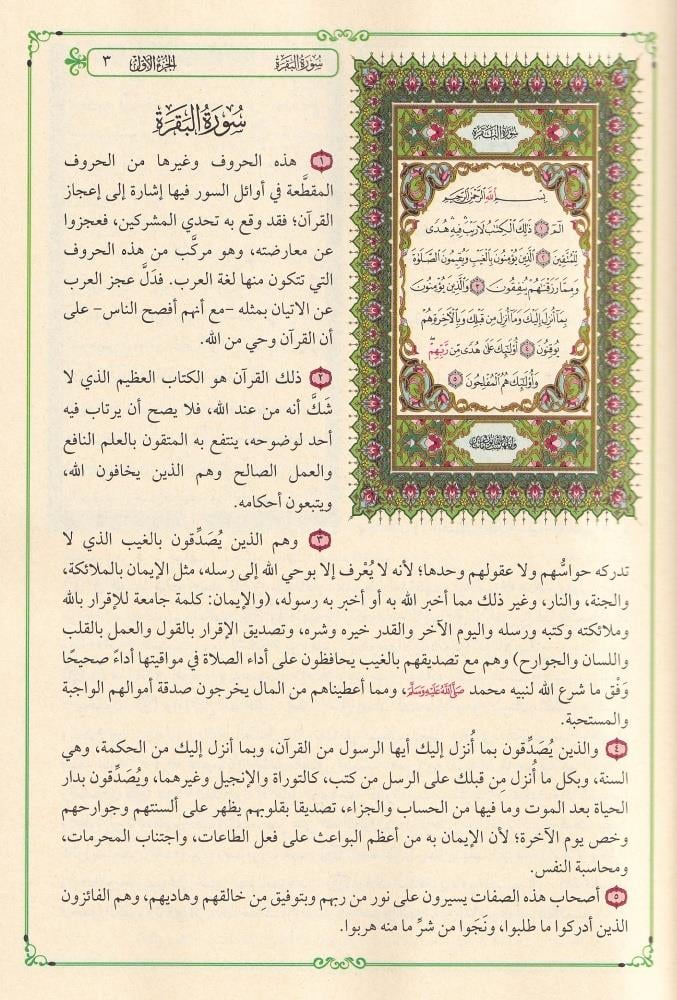 سورة البقرة
الجزء الأول
٣
سُورَةُ البَقَرَة
بِسْمِ اللَّهِ الرَّحْمَٰنِ الرَّحِيمِ
الٓمٓ ١ ذَٰلِكَ الْكِتَٰبُ لَا رَيْبَ فِيهِ هُدًى
لِّلْمُتَّقِينَ ٢ الَّذِينَ يُؤْمِنُونَ بِالْغَيْبِ وَيُقِيمُونَ الصَّلَوٰةَ
وَمِمَّا رَزَقْنَٰهُمْ يُنفِقُونَ ٣ وَالَّذِينَ يُؤْمِنُونَ
بِمَا أُنزِلَ إِلَيْكَ وَمَا أُنزِلَ مِن قَبْلِكَ وَبِالْآخِرَةِ هُمْ
يُوقِنُونَ ٤ أُولَٰئِكَ عَلَىٰ هُدًى مِّن رَّبِّهِمْ
وَأُولَٰئِكَ هُمُ الْمُفْلِحُونَ ٥
سُورَةُ البَقَرَة
١ هذه الحروف وغيرها من الحروف
المقطَّعة في أوائل السور فيها إشارة إلى إعجاز
القرآن؛ فقد وقع به تحدي المشركين، فعجزوا
عن معارضته، وهو مركَّب من هذه الحروف
التي تتكون منها لغة العرب. فدَلَّ عجز العرب
عن الاتيان بمثله -مع أنهم أفصح الناس- على
أن القرآن وحي من الله.
٢ ذلك القرآن هو الكتاب العظيم الذي لا
شَكَّ أنه من عند الله، فلا يصح أن يرتاب فيه
أحد لوضوحه، ينتفع به المتقون بالعلم النافع
والعمل الصالح وهم الذين يخافون الله،
ويتبعون أحكامه.
٣ وهم الذين يُصَدِّقون بالغيب الذي لا
تدركه حواسُّهم ولا عقولهم وحدها؛ لأنه لا يُعْرف إلا بوحي الله إلى رسله، مثل الإيمان بالملائكة،
والجنة، والنار، وغير ذلك مما أخبر الله به أو أخبر به رسوله، (والإيمان: كلمة جامعة للإقرار بالله
وملائكته وكتبه ورسله واليوم الآخر والقدر خيره وشره، وتصديق الإقرار بالقول والعمل بالقلب
واللسان والجوارح) وهم مع تصديقهم بالغيب يحافظون على أداء الصلاة في مواقيتها أداءً صحيحًا
وَفْق ما شرع الله لنبيه محمد صَلَّى اللَّهُ عَلَيْهِ وَسَلَّمَ، ومما أعطيناهم من المال يخرجون صدقة أموالهم الواجبة
والمستحبة.
٤ والذين يُصَدِّقون بما أُنزل إليك أيها الرسول من القرآن، وبما أنزل إليك من الحكمة، وهي
السنة، وبكل ما أُنزل مِن قبلك على الرسل من كتب، كالتوراة والإنجيل وغيرهما، ويُصَدِّقون بدار
الحياة بعد الموت وما فيها من الحساب والجزاء، تصديقا بقلوبهم يظهر على ألسنتهم وجوارحهم
وخص يوم الآخرة؛ لأن الإيمان به من أعظم البواعث على فعل الطاعات، واجتناب المحرمات،
ومحاسبة النفس.
٥ أصحاب هذه الصفات يسيرون على نور من ربهم وبتوفيق مِن خالقهم وهاديهم، وهم الفائزون
الذين أدركوا ما طلبوا، ونَجَوا من شرِّ ما منه هربوا.